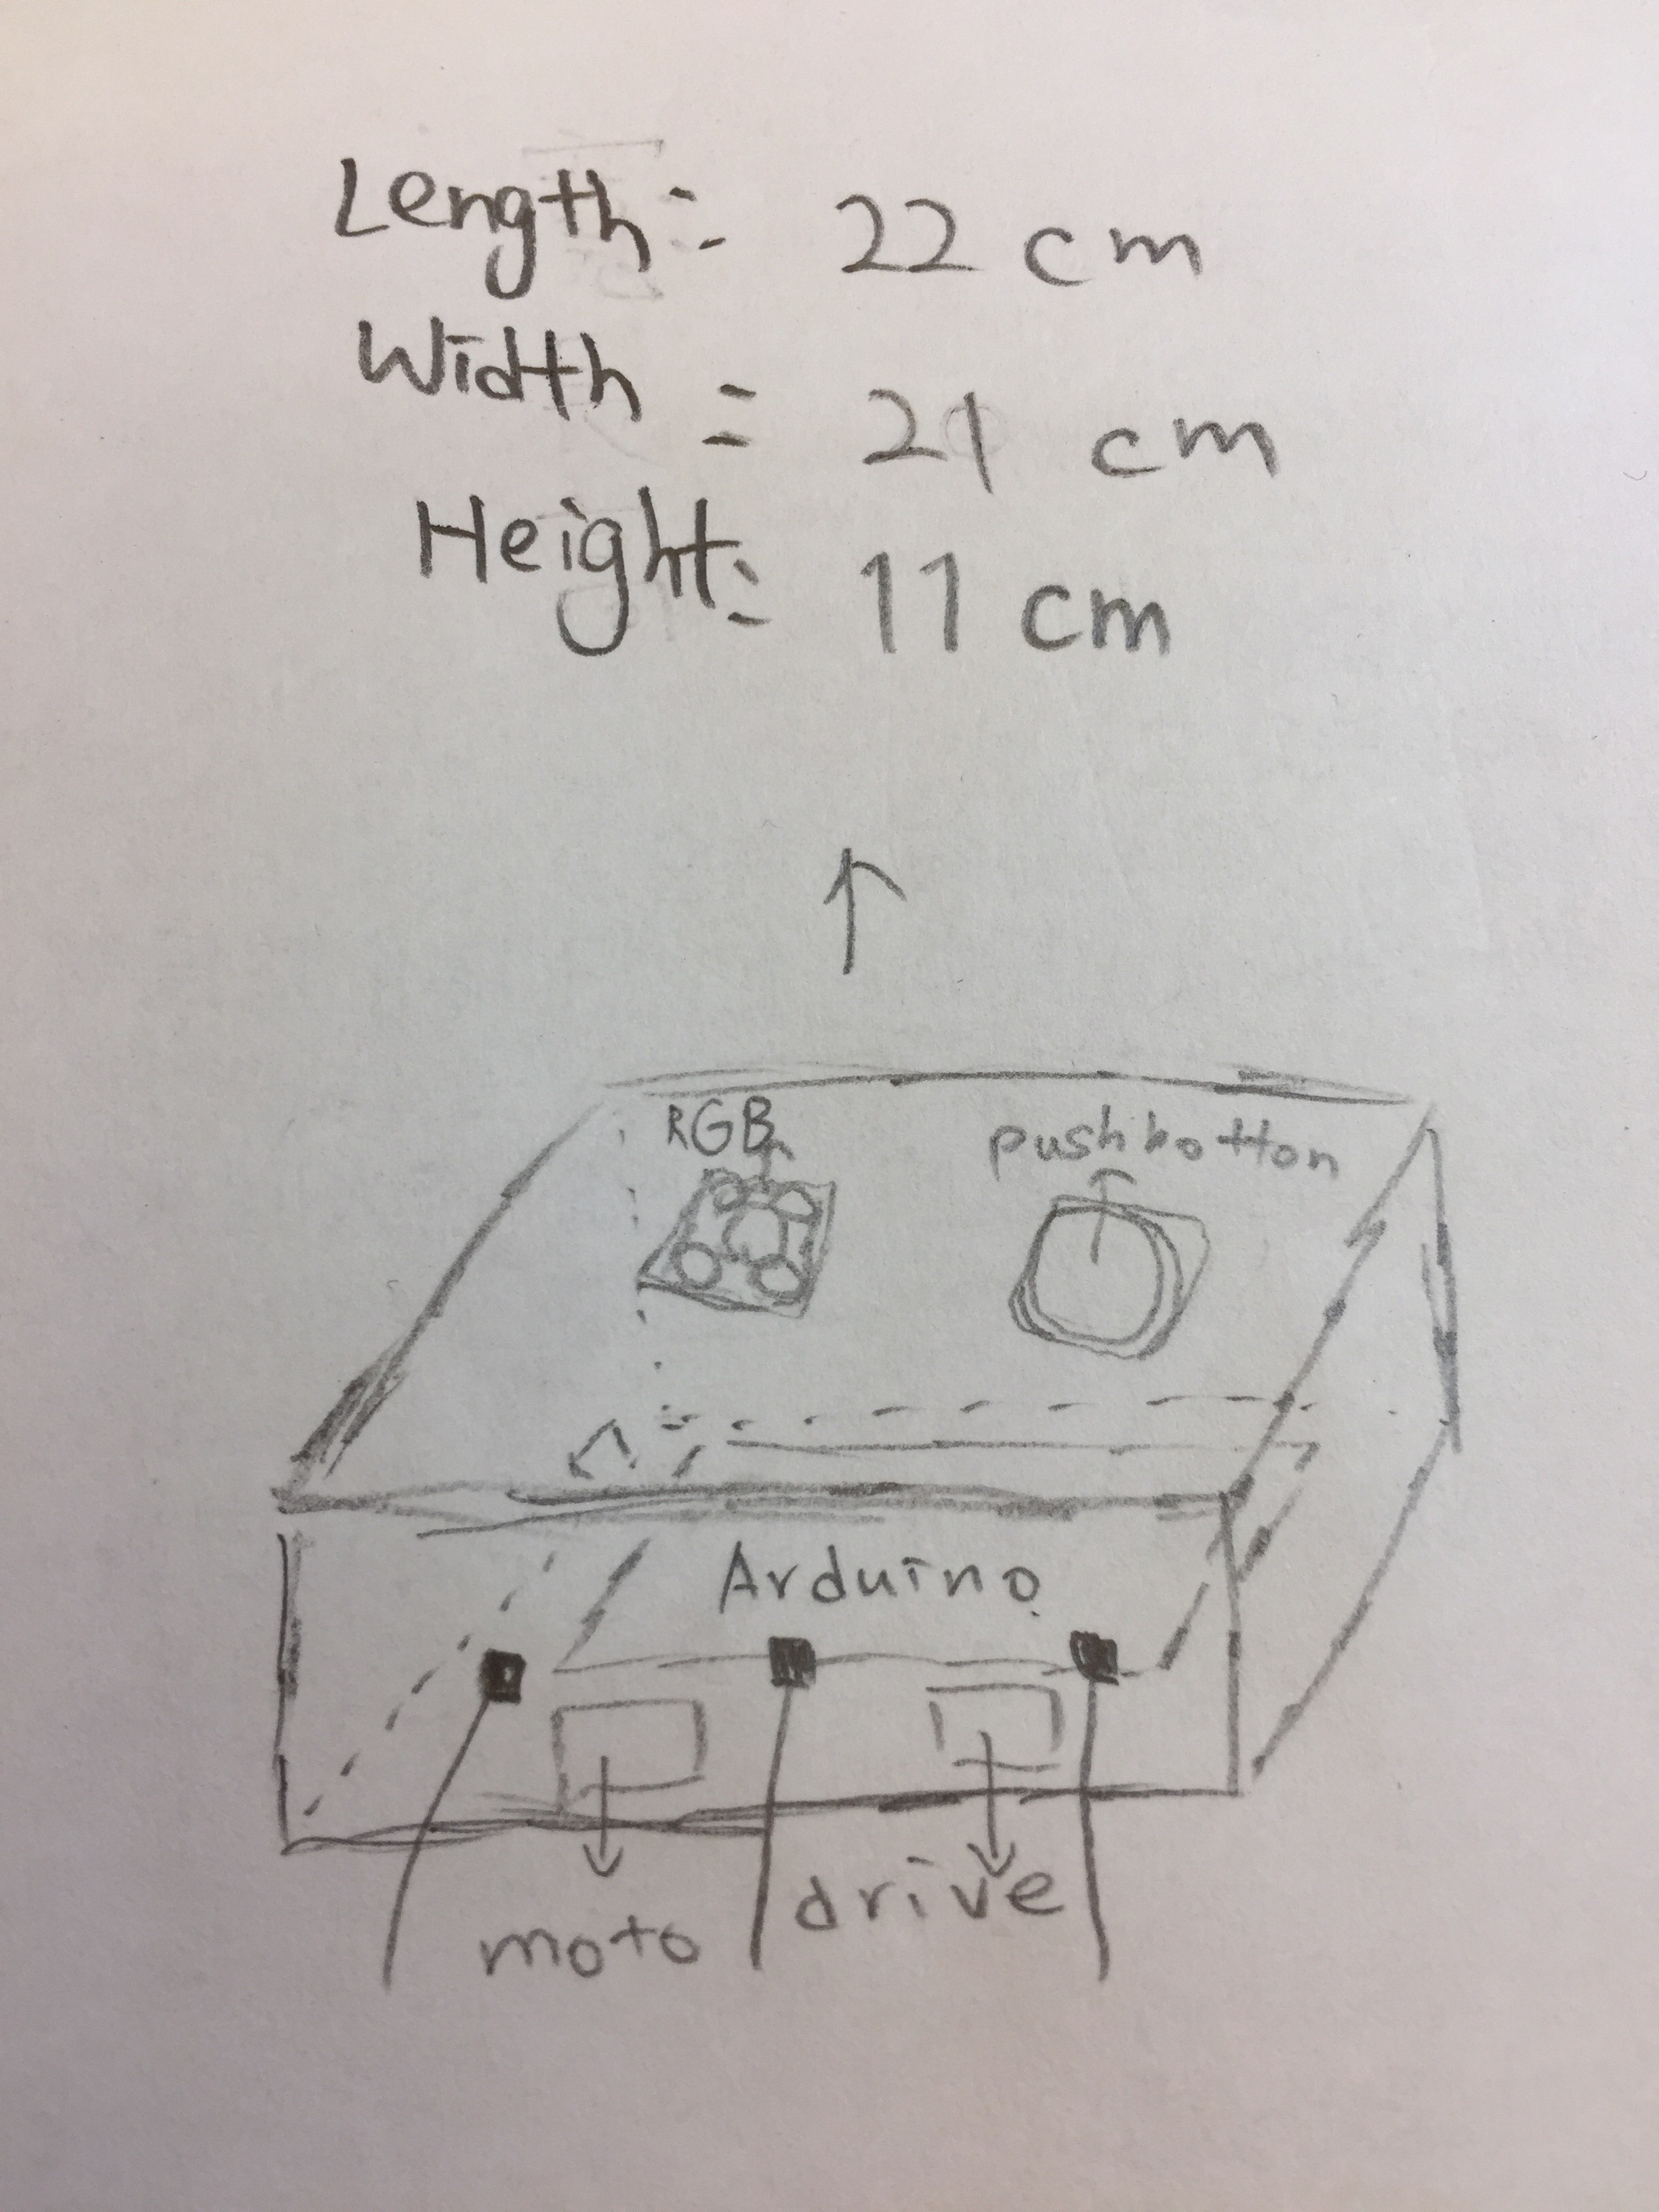 Length = 22 cm
Width = 21 cm
Height = 11 cm
RGB
pushbotton
Arduino
moto
drive